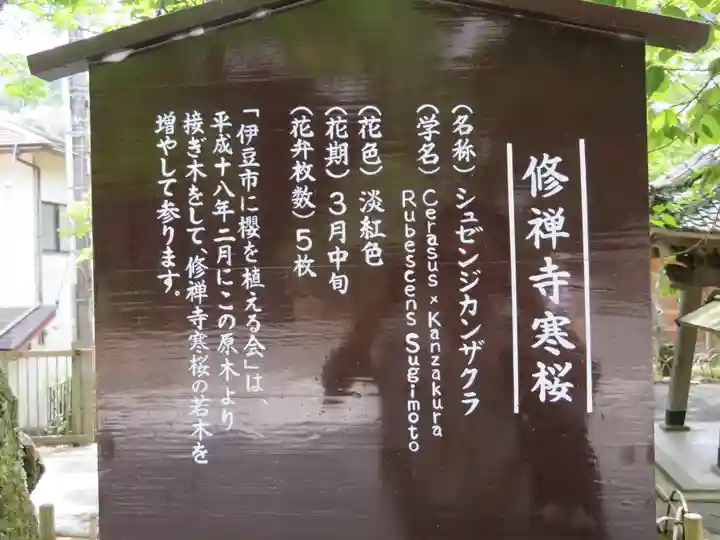 修禅寺寒桜
(名称)シュゼンジカンザクラ
(学名)Cerasus × Kanzakura
Rubescens Sugimoto
(花色)淡紅色
(花期)3月中旬
(花弁枚数)5枚
「伊豆市に櫻を植える会」は、
平成十八年二月にこの原木より
接ぎ木をして、修禅寺寒桜の若木を
増やして参ります。